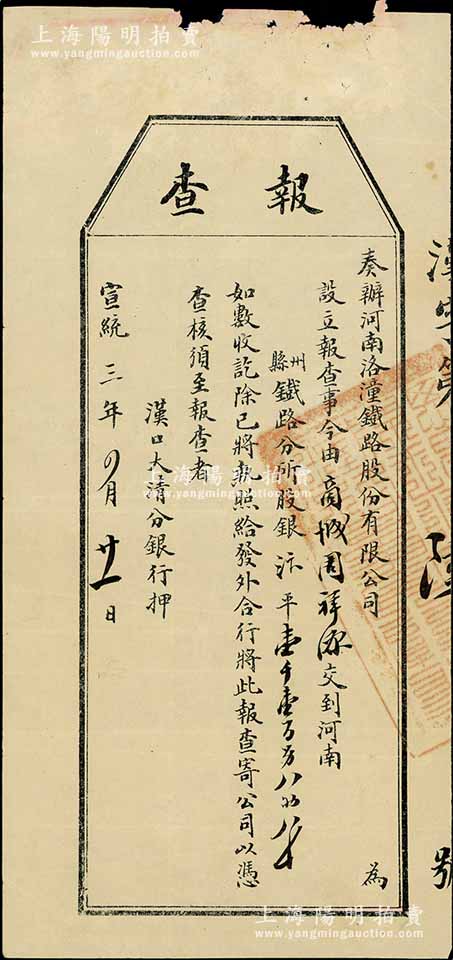 上海陽明拍賣
www.yangmingauction.com
漢字第 陸 號
報查
奏辦河南洛潼鐵路股份有限公司 為
設立報查事今由商城周祥源交到河南
州縣鐵路分所股銀汴平壹千壹百
如數收訖除已將執照給發外合行將此報查寄公司以憑
查核須至報查者
漢口大清分銀行押
宣統三年四月廿一日
上海陽明拍賣
www.yangmingauction.com
上海陽明拍賣
www.yangmingauction.com